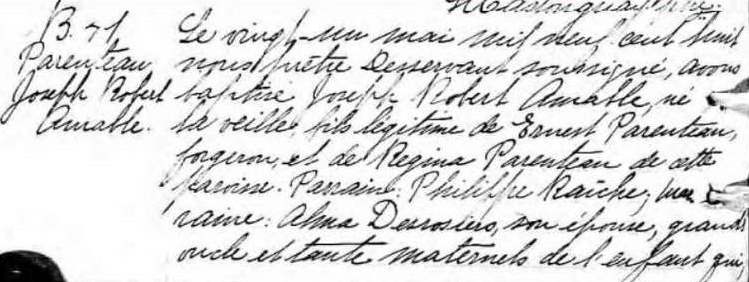 B. 71
Parenteau
Joseph Robert
Amable.
Le vingt-un mai mil neuf cent huit
nous prêtre Desservant soussigné, avons
baptisé Joseph Robert Amable, né
la veille, fils légitime de Ernest Parenteau,
forgeron, et de Régina Parenteau de cette
paroisse. Parrain: Philippe Raîche; mar
raine: Alma Desrosiers, son épouse, grands
oncle et tante maternels de l'enfant qui,